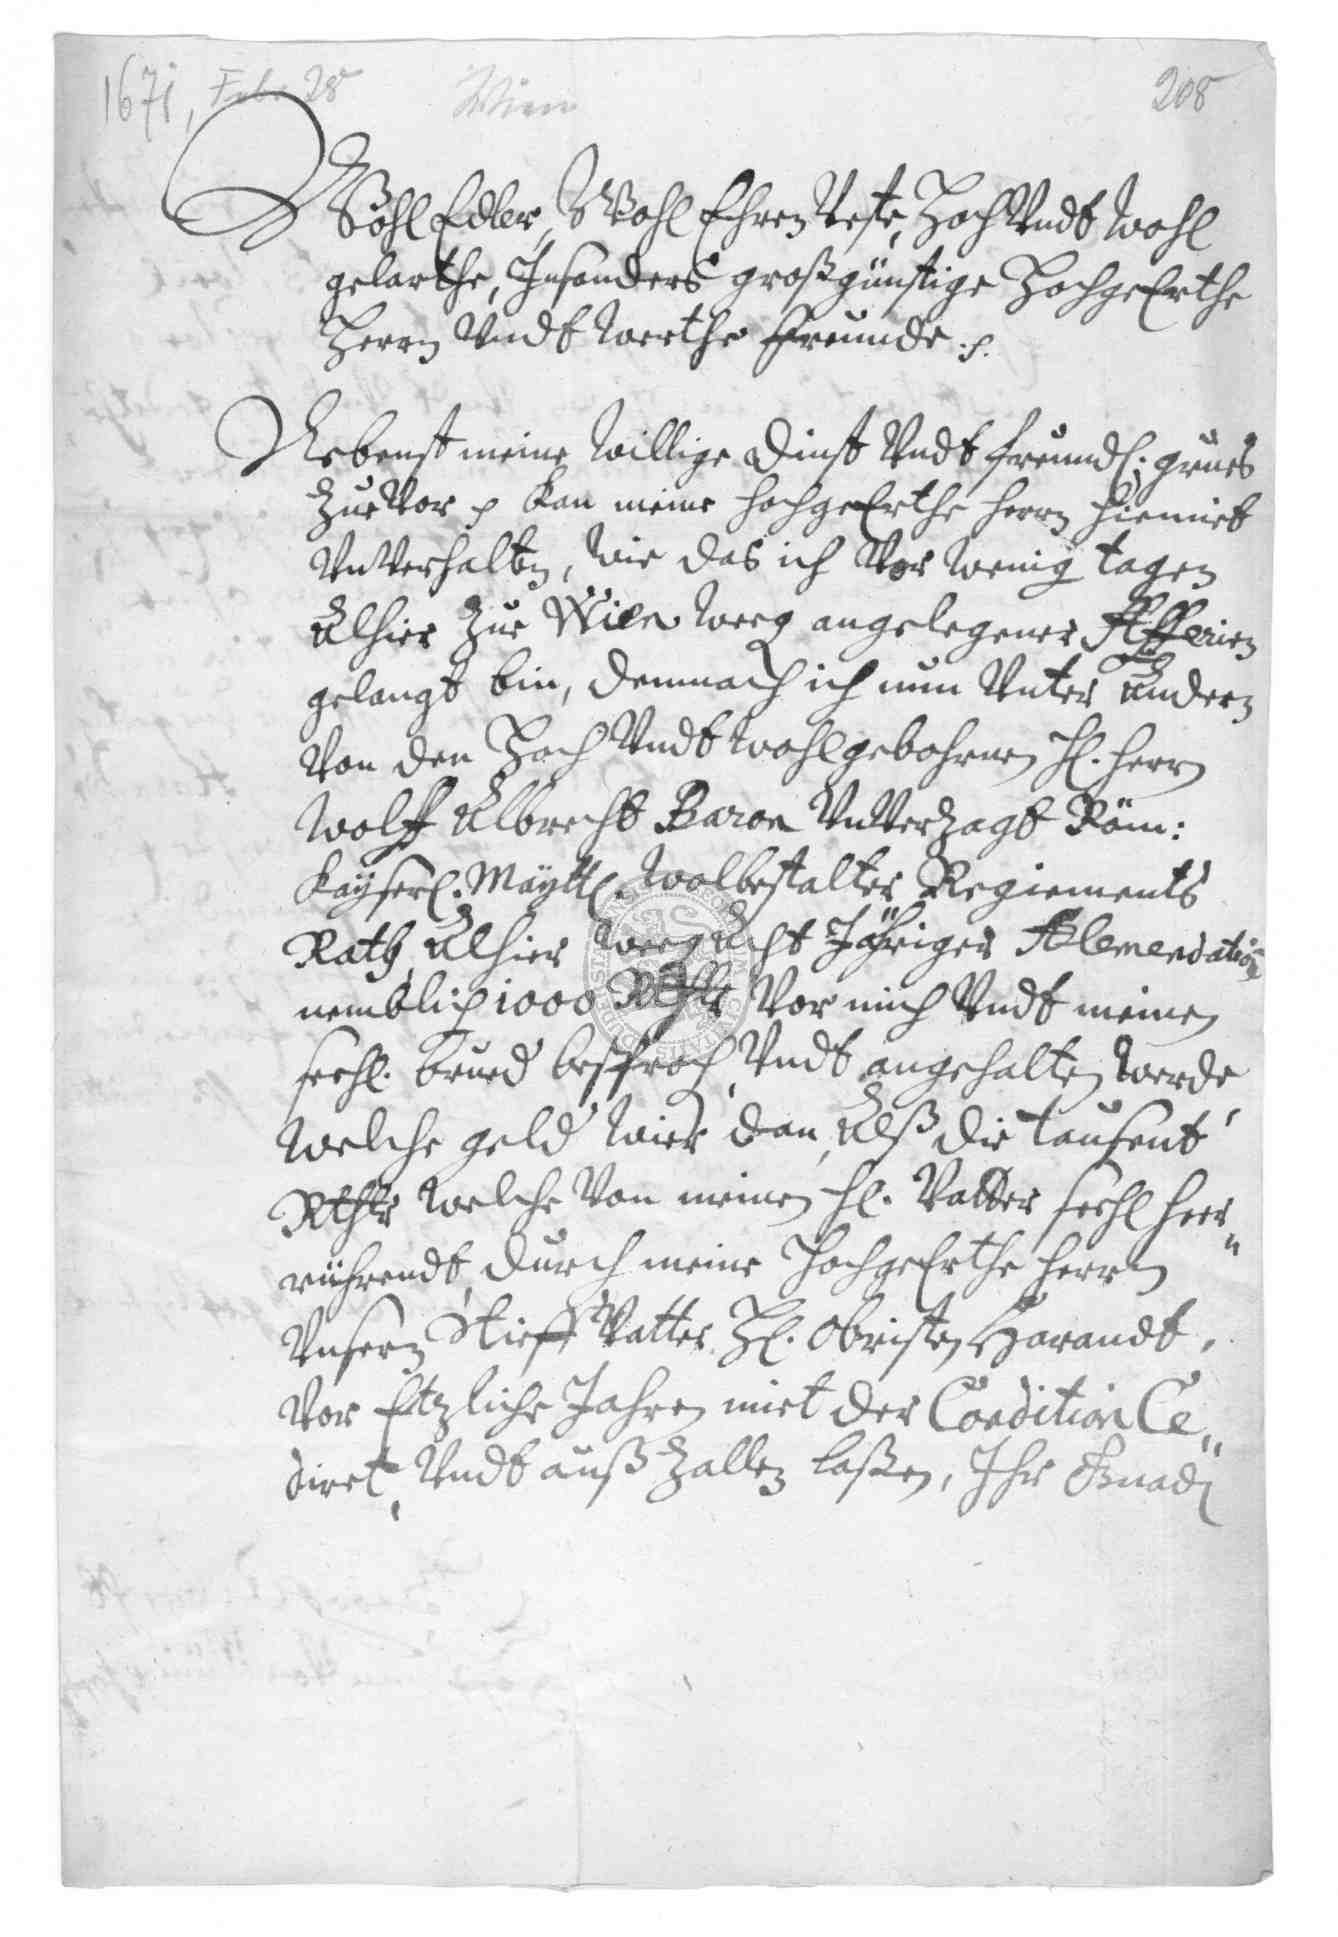 1671, Feb. 28 Wien 208
Wohl Edler, Wohl Ehren Veste, Hoch Vndt Wohl
gelarthe, Insonders großgünstige HochgeErthe
Herrn Vndt Werthe Freunde .p.
Nebenst meine Willige Dinst Vndt freundl: grues
Zue Vor p kan meine hochgeErthe herrn hiemiet
VnVerhalten, Wie das ich Vor Wenig tagen
Alhier Zue Wien Weeg angelegener Affairen
gelangt bin, demnach ich nun Vnter Andern
Von den Hoch Vndt Wohlgebohrnen Hl. Herrn
Wolff Albrecht Baron VnVerzagt Röm:
Kaÿserl. Maÿtt. Wolbestalter Regiements
Rath Alhier Weeg Acht Jähriger Alemendation
nemblich 1000 Rthlr Vor mich Vndt meinen
seehl. brued besproch Vndt angehalten Werde
Welche geld Wier dan, Alß die tausent
Rthlr Welche Von meinen Hl. Vatter seehl heer„
rührendt, durch meine HochgeErthe Herrn
Vnsern Stieff Vatter Hl. Obristen Harandt,
Vor Etzliche Jahren miet der Condition Ce„
diret, Vndt auß Zallen laßen, Ihr Gnad